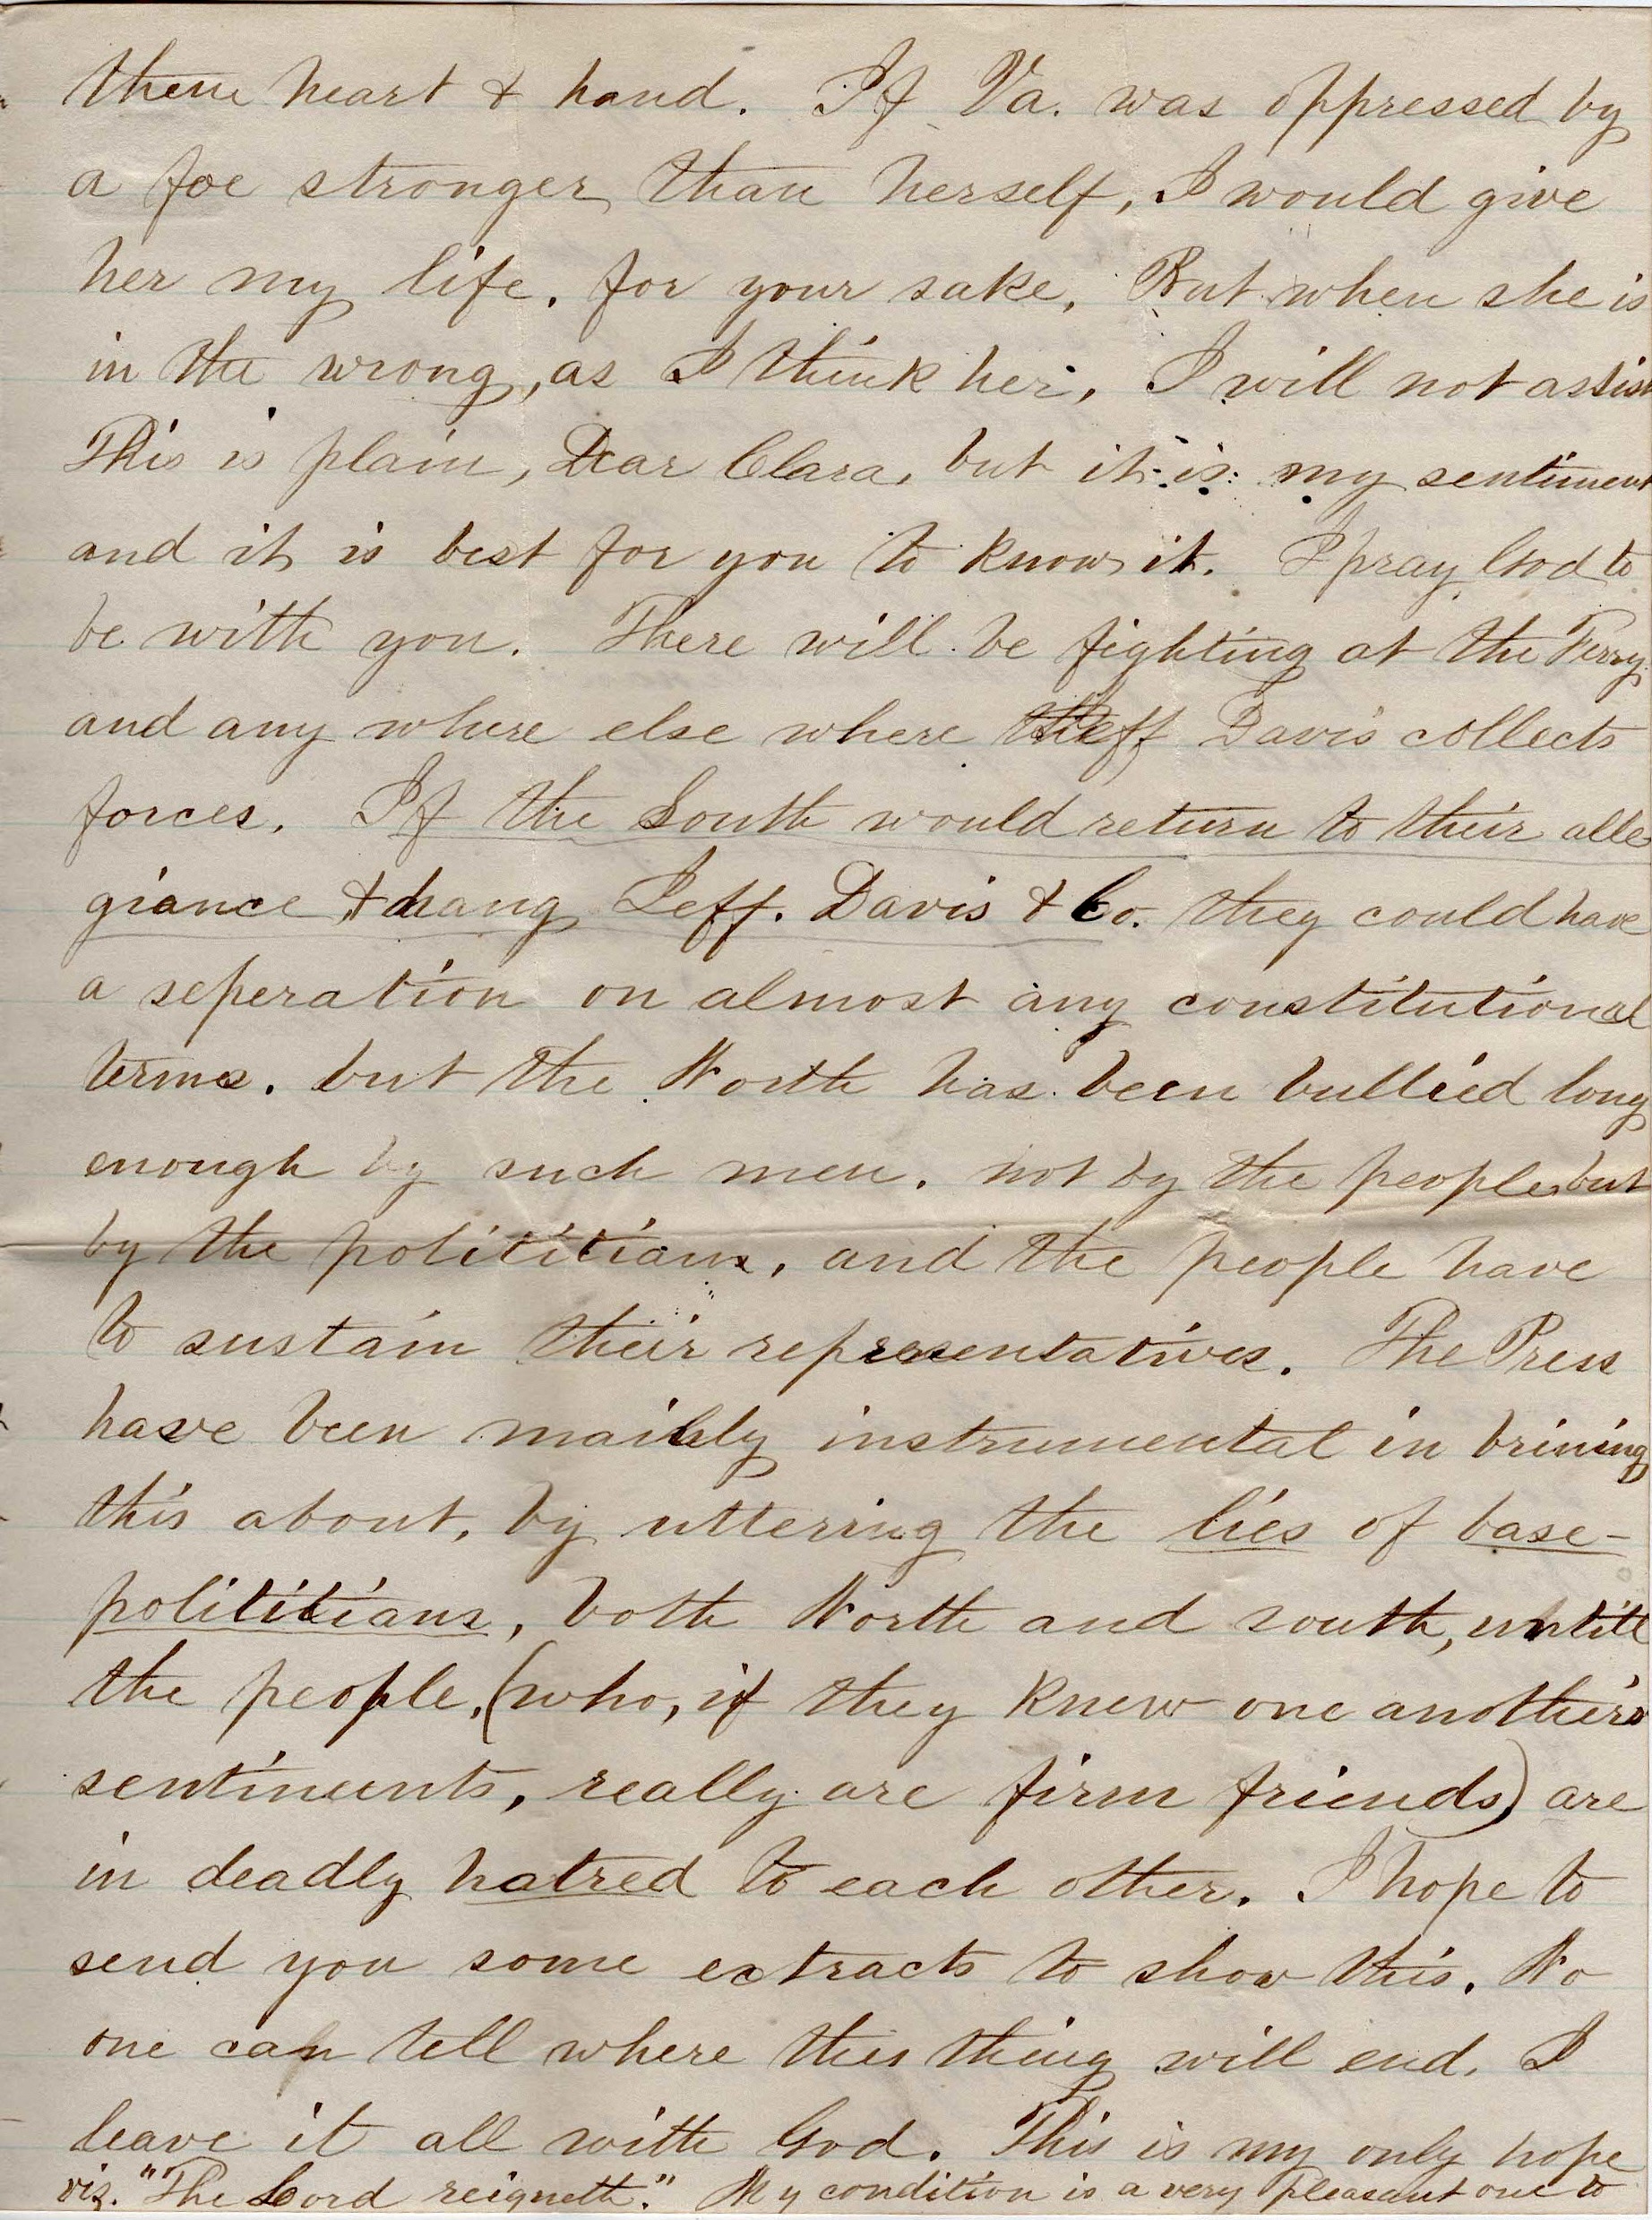 them heart & hand. If Va. was oppressed by
a foe stronger than herself, I would give
her my life, for your sake, But when she is
in the wrong, as I think her, I will not assist
This is plain, Dear Clara, but it is my sentiment
and it is best for you to know it. I pray God to
be with you. There will be fighting at the Ferry
and any where else where Jeff Davis collects
forces. If the South would return to their alle
giance & hang Jeff. Davis & Co. they could have
a seperation on almost any constitutional
terms. but the North has been bullied long
enough by such men. not by the people, but
by the polititians, and the people have
to sustain their representatives. The Press
have been mainly instrumental in brining
this about, by uttering the lies of base-
polititians, both North and south, untill
the people, (who, if they knew one another's
sentiments, really are firm friends) are
in deadly hatred to each other. I hope to
send you some extracts to show this. No
one can tell where this thing will end. I
leave it all with God. This is my only hope
viz. "The Lord reigneth." My condition is a very pleasant one to